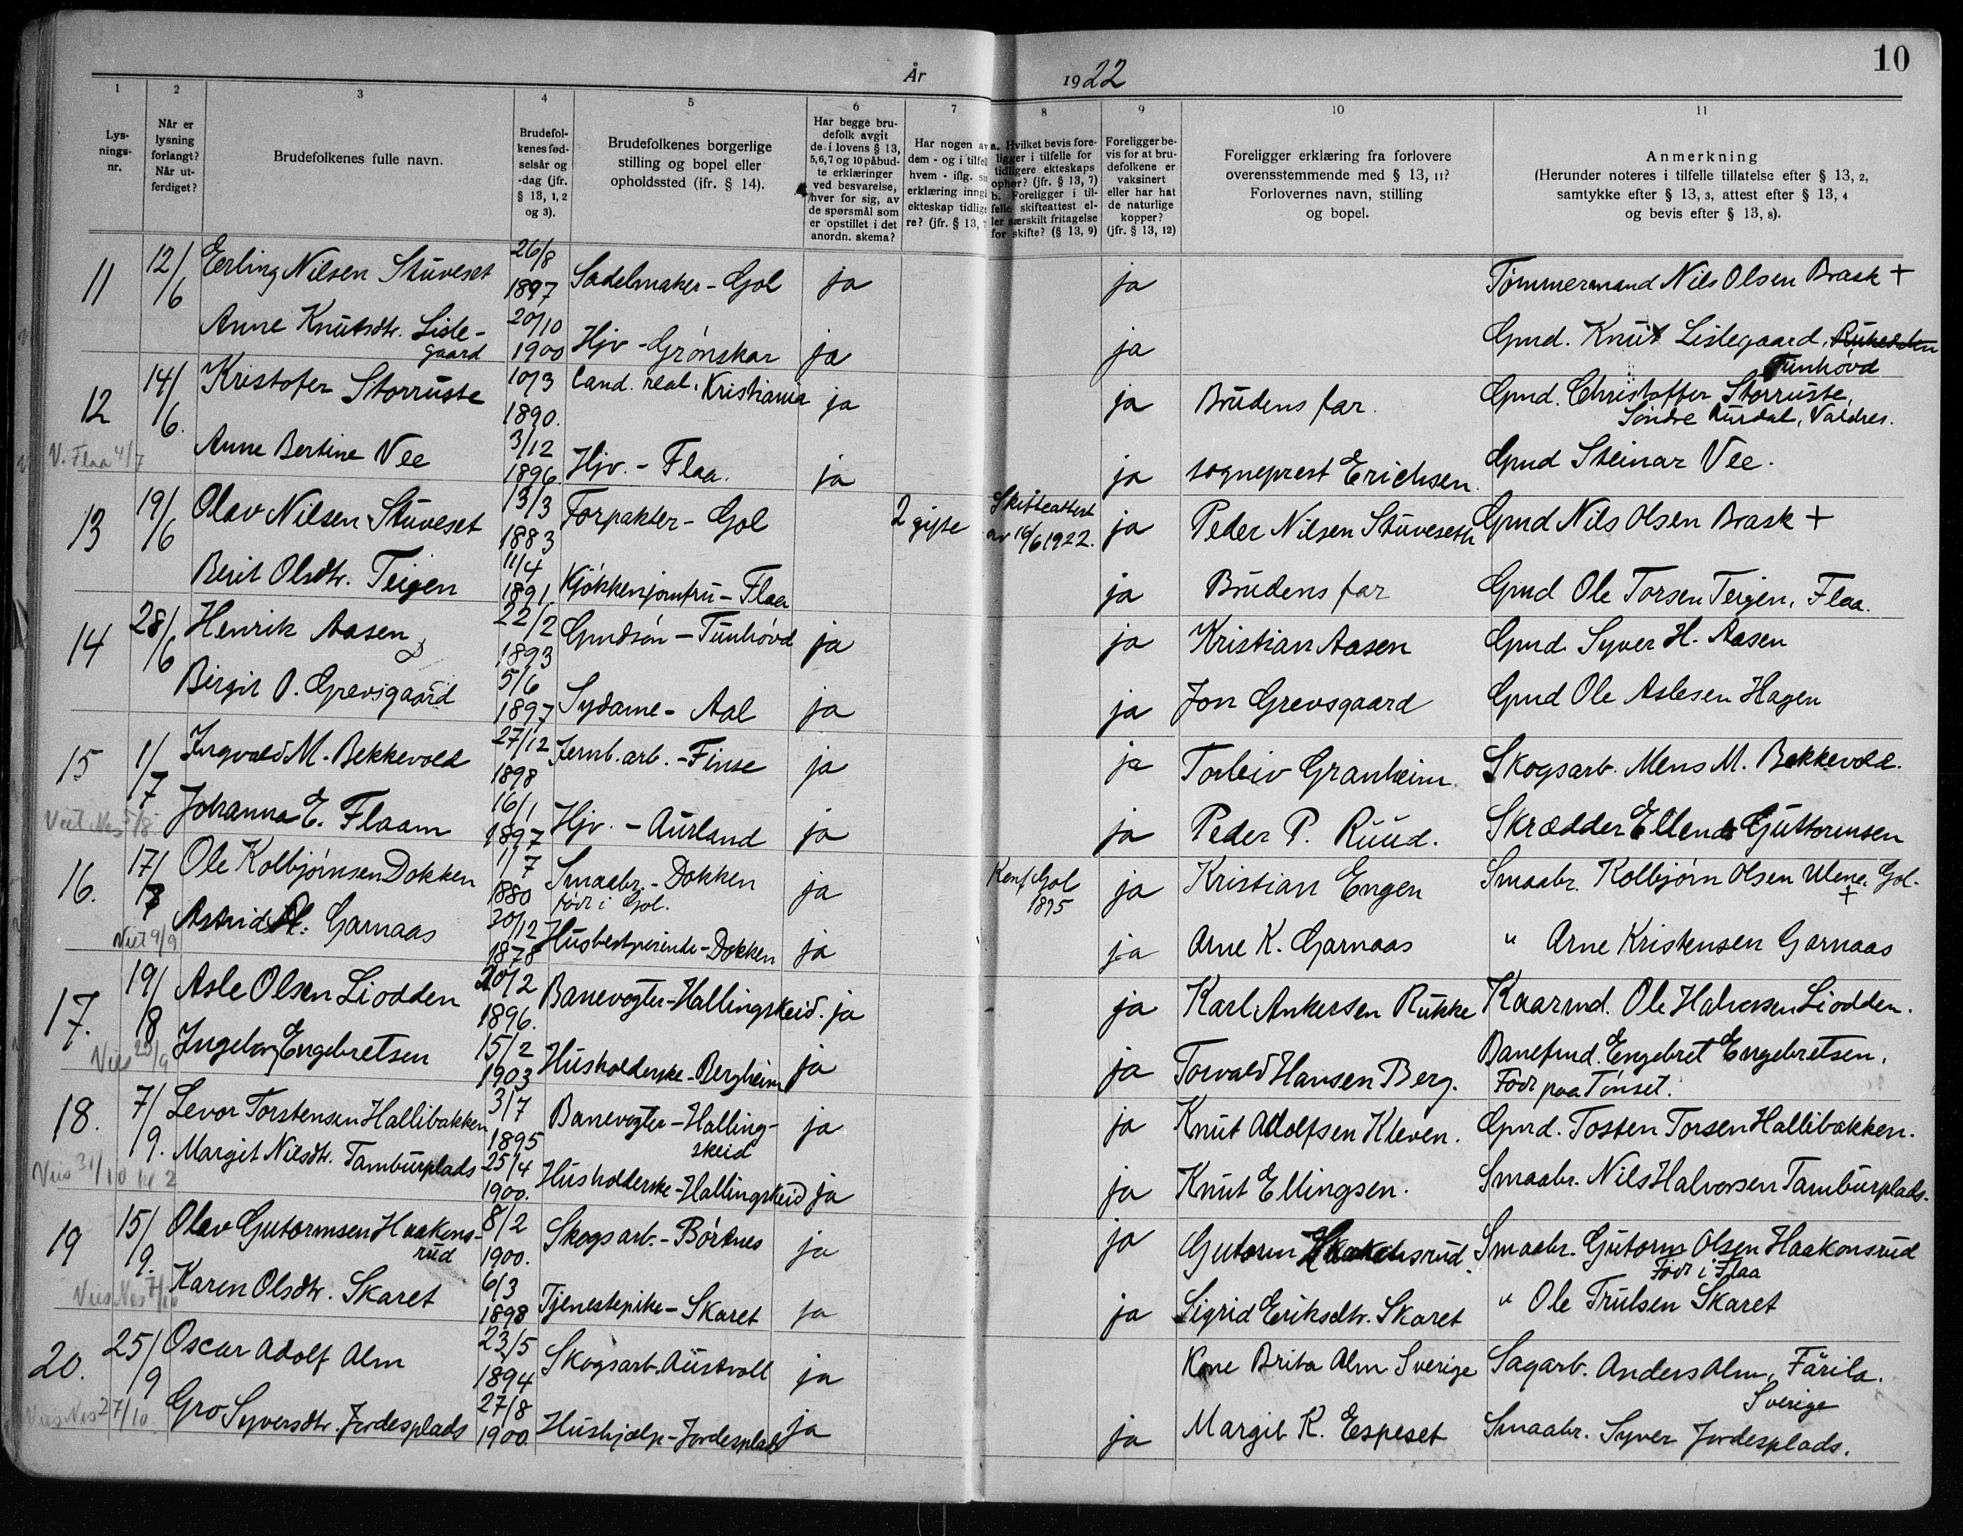 År 1922
10
1 2 3 4 5 6 7 8 9 10 11
Lys-
nings-
nr.
Når er
lysning
forlangt?
Når ut-
ferdiget?
Brudefolkenes fulle navn.
Brudefol-
kenes fød-
selsår og
-dag (jfr.
§ 13, 1, 2
og 3).
Brudefolkenes borgerlige
stilling og bopel eller
opholdssted (jfr. § 14).
Har begge bru-
defolk avgit
de i lovens § 13,
5, 6, 7 og 10 påbud-
te erklæringer
ved besvarelse,
hver for sig, av
de spørsmål som
er opstillet i det
anordn. skema?
Har nogen av
dem - og i tilfelle
hvem - iflg. sin
erklæring inngått
ekteskap tidlige-
re? (jfr. § 13, 7
a. Hvilket bevis fore-
ligger i tilfelle for
tidligere ekteskaps
ophør? (jfr. § 13, 7)
b. Foreligger i til-
felle skifteattest el-
ler særskilt fritagelse
for skifte? (§ 13, 9)
Foreligger be-
vis for at bru-
defolkene er
vaksinert
eller har hat
de naturlige
kopper?
(jfr. § 13, 12)
Foreligger erklæring fra forlovere
overensstemmende med § 13, 11?
Forlovernes navn, stilling
og bopel.
Anmerkning
(Herunder noteres i tilfelle tillatelse efter § 13, 2,
samtykke efter § 13, 3, attest efter § 13, 4
og bevis efter § 13, 8).
11 12/6 Erling Nilsen Stuveset 26/8 1897 Sadelmaker - Gol ja ja Tømmermand Nils Olsen Brask +
Anne Knutsdtr. Lisle-
gaard 20/10 1900 Hjv - Grønskar ja ja Gmd. Knut Lislegaard,
Tunhövd
12 14/6. Kristofer Storruste 10/3 1890. Cand. real, Kristiania ja ja Brudens far. Gmd. Christoffer Storruste,
Søndre Aurdal, Valdres.
V. Flaa 4/7 Anne Bertine Vee 3/12 1896 Hjv. - Flaa. ja ja sogneprest Erichsen. Gmd Steinar Vee.
13 19/6 Olav Nilsen Stuveset 13/3 1883 Forpakter - Gol 2 gifte Skifteattest
av 16/6 1922. ja Peder Nilsen Stuveseth Gmd Nils Olsen Brask +
Berit Olsdtr. Teigen 11/4 1891 Kjøkkenjomfru - Flaa ja Brudens far Gmd Ole Torsen Teigen, Flaa.
14 28/6 Henrik Aasen 22/2 1893 Gmdsøn - Tunhövd ja ja Kristian Aasen Gmd Syver H. Aasen
Birgit O. Grevsgaard 5/6 1897 Sydame - Aal ja ja Jon Grevsgaard Gmd Ole Aslesen Hagen
15 1/7 Ingvald M. Bekkevold 27/12 1898 Jernb.arb. - Finse ja ja Torleiv Granheim Skogsarb. Mons M. Bekkevold.
Viet Nes 5/8 Johanna E. Flaam 16/1 1897 Hjv. - Aurland ja ja Peder P. Ruud. Skrædder Ellend Guttormsen
16. 17/7 Ole Kolbjørnsen Dokken 1/7 1880 Smaabr. - Dokken
født i Gol. ja Konf. Gol
1895 ja Kristian Engen Smaabr. Kolbjørn Olsen Ulene, Gol. +
Viet 9/9 Astrid A. Garnaas 30/12 1878 Husbestyrerinde - Dokken ja ja Arne K. Garnaas " Arne Kristensen Garnaas
17. 19/8 Asle Olsen Liodden 20/2 1896. Banevogter - Hallingskeid. ja ja Karl Ankersen Rukke Kaarmd. Ole Halvorsen Liodden.
Vies 23/9 Ingeborg Engebretsen 15/2 1903 Husholderske - Bergheim ja ja Torvald Hansen Berg. Banefmd. Engebret Engebretsen.
Født paa Tönset.
18. 7/9. Levor Torstensen Hallibakken 3/7 1895 Banevogter - Halling-
skeid ja ja Knut Adolfsen Kleven. Gmd. Tosten Torsen Hallibakken.
Vies 31/10 kl 2 Margit Nilsdtr. Tamburplads 25/4 1900. Husholderske - Hallingskeid ja ja Knut Ellingsen. Smaabr. Nils Halvorsen Tamburplads.
19 15/9. Olav Gutormsen Haakons-
rud 8/2 1900. Skogsarb. - Börtnes ja ja Gutorm Haakonsrud. Smaabr. Gutorm Olsen Haakonsrud
Født i Flaa
Vies Nes 7/10 Karen Olsdtr. Skaret 6/3 1898 Tjenestepike - Skaret ja ja Sigrid Eriksdtr. Skaret " Ole Trulsen Skaret
20. 25/9 Oscar Adolf Alm 23/5 1894 Skogsarb. Austvoll ja Kone Brita Alm Sverige Sagarb. Anders Alm, Färila.
Sverige
Vies Nes 27/10. Gro Syversdtr. Jordesplads 27/8 1900. Hushjælp - Jordesplads ja ja Margit K. Espeset Smaabr. Syver Jordesplads.